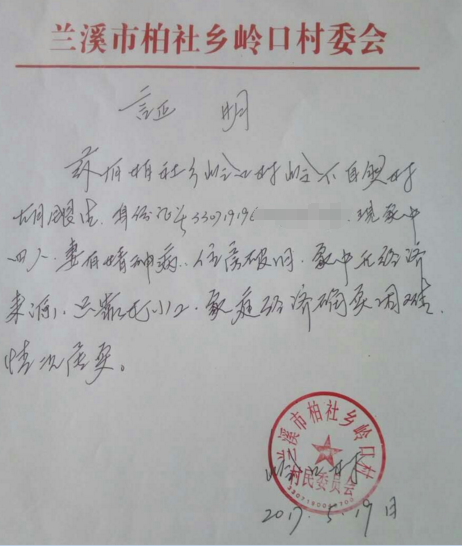 兰溪市柏社乡岭口村委会
証 明
兹有柏社乡岭口村岭下自然村
身份证号330719196 现家中
四人.妻有精神病.住房破旧.家中无经济
来源.只靠打小工.家庭经济确实困难.
情况属实。
兰溪市柏社乡岭口村
村民委员会
岭口村
2017.5.19日